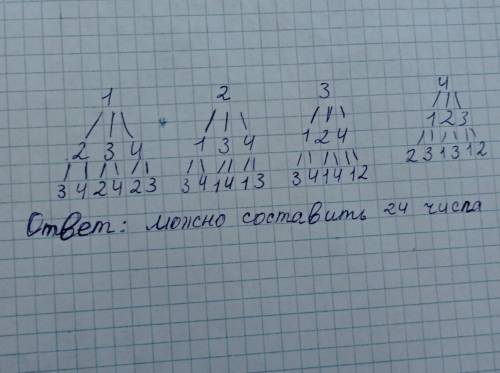 1 2 3 4
2 3 4 1 3 4 1 2 4 1 2 3
3 4 2 4 2 3 3 4 1 4 1 3 3 4 1 4 1 2 2 3 1 3 1 2
Ответ: можно составить 24 числа